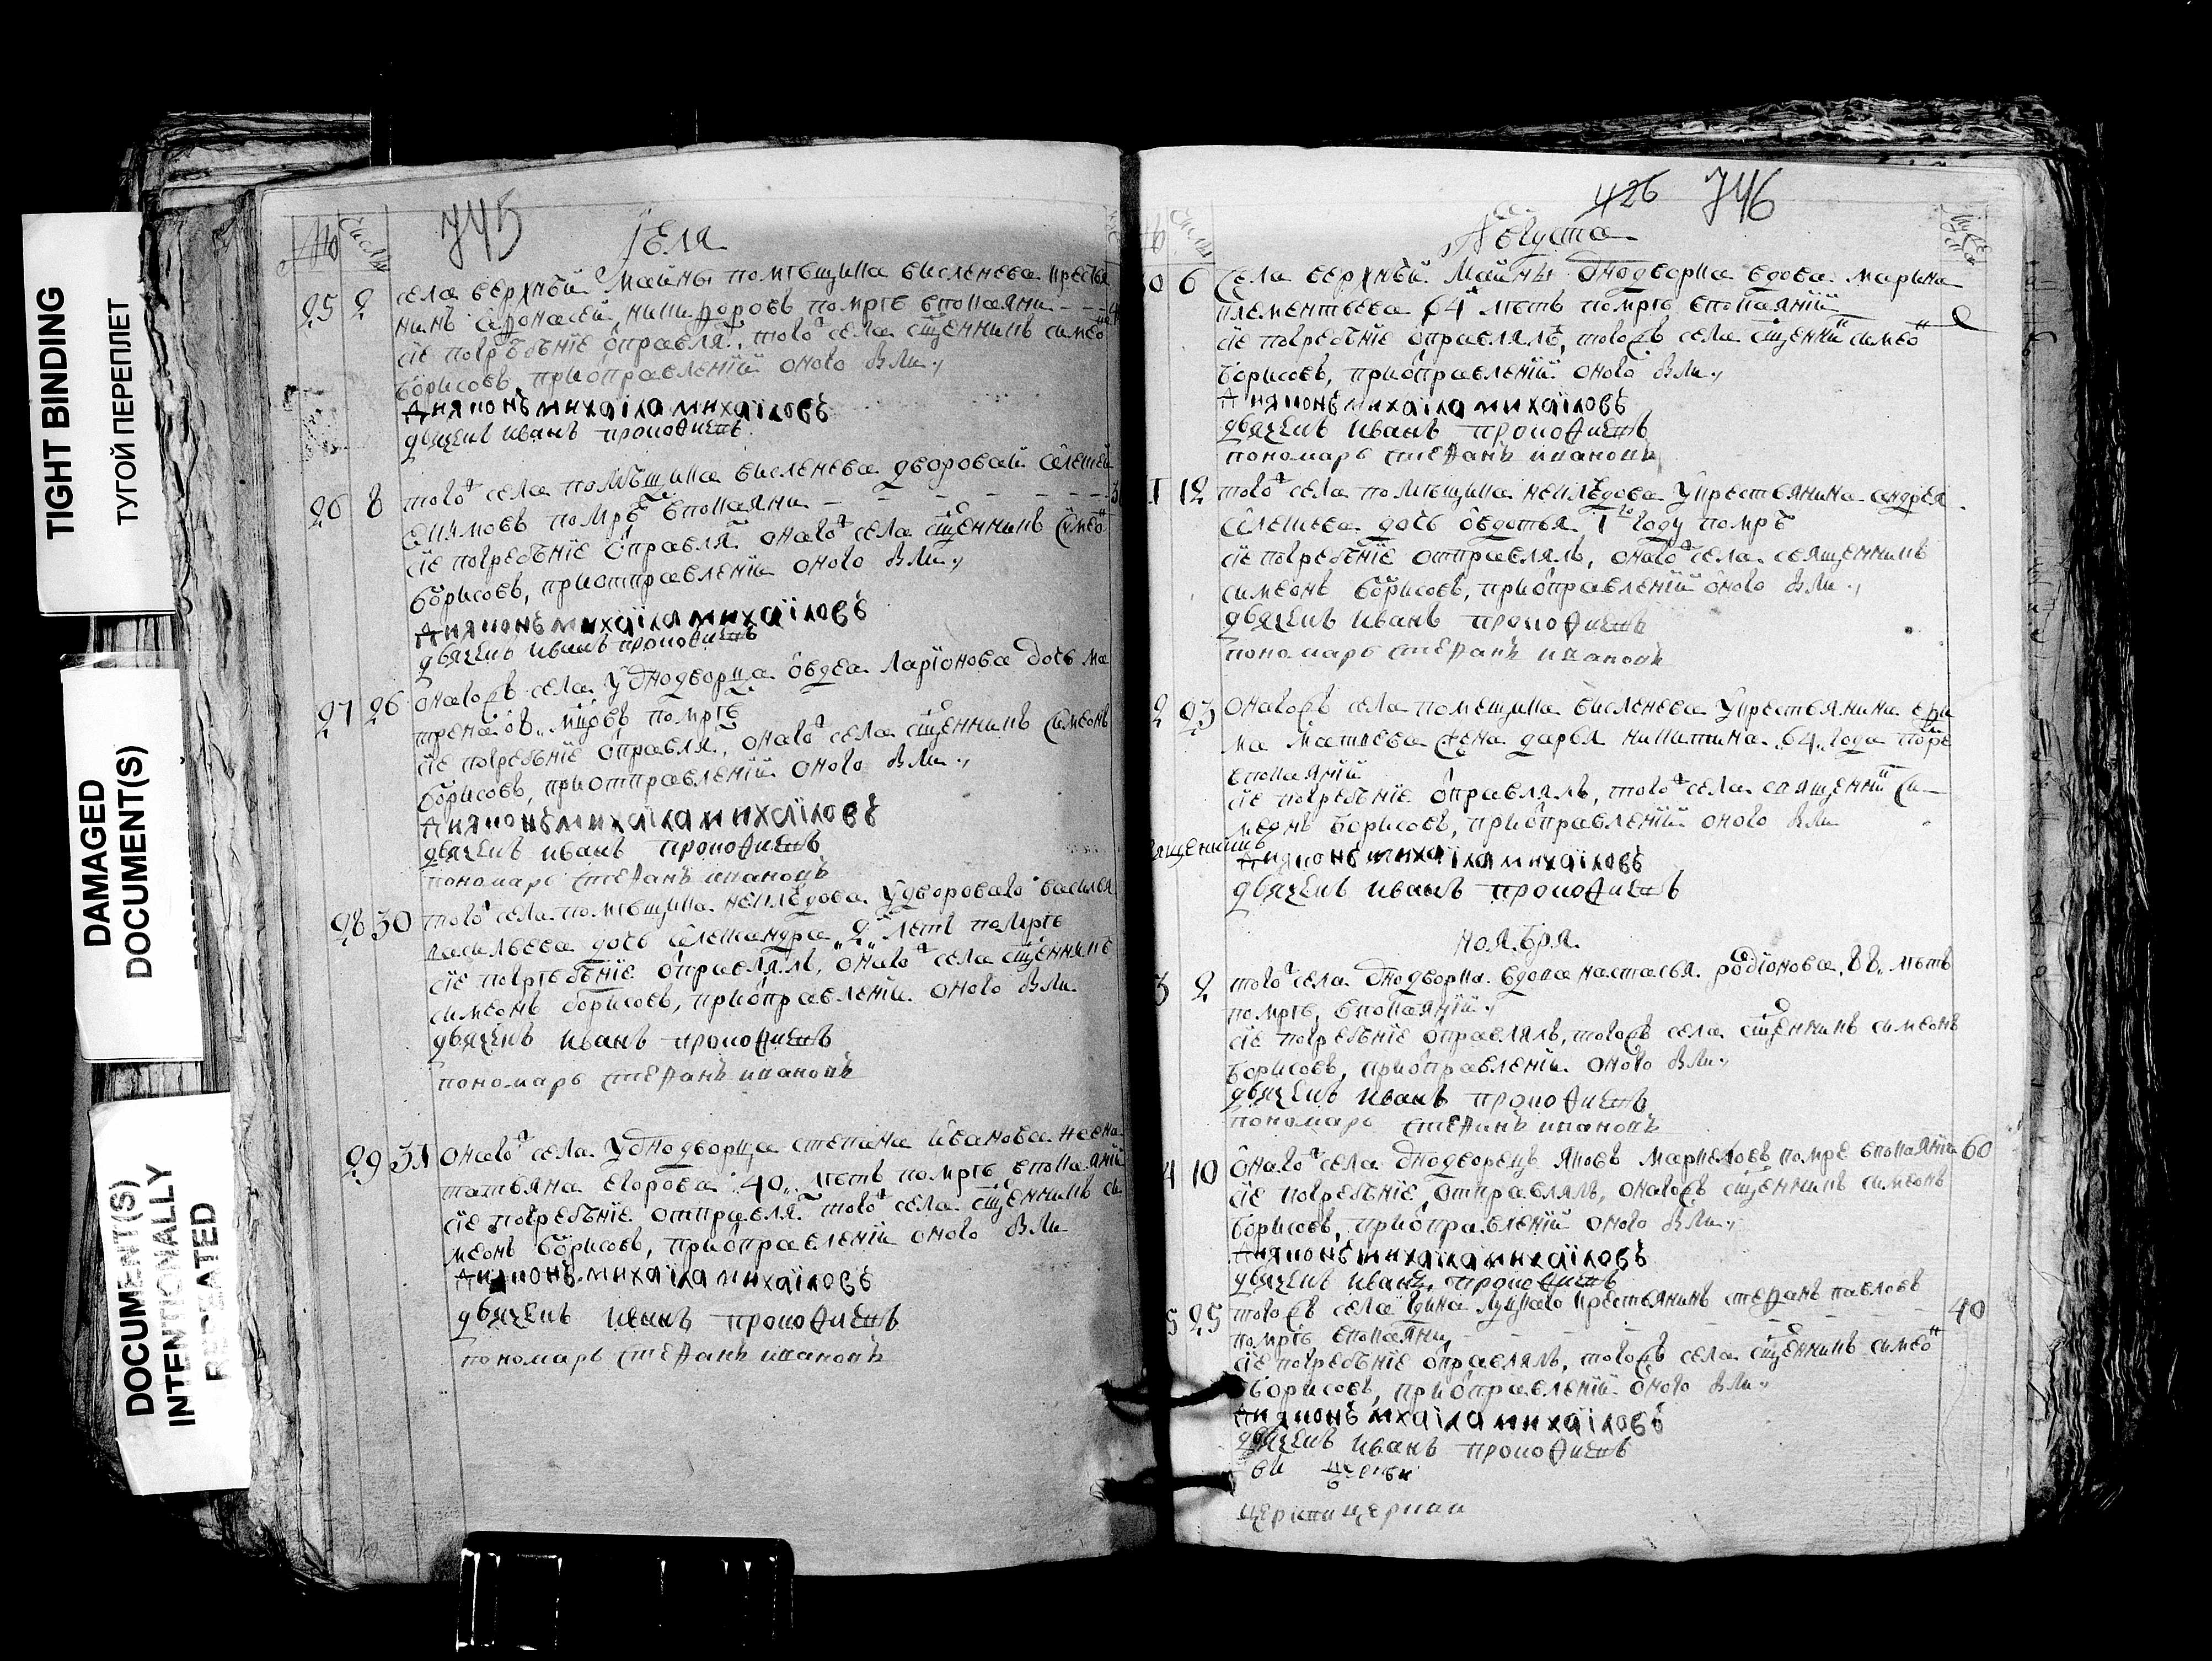 TIGHT BINDING
ТУГОЙ ПЕРЕПЛЕТ
DAMAGED
DOCUMENT(S)
DOCUMENT(S)
INTENTIONALLY
REPEATED
745
іюля
25 2 села верхнѣй майны помѣщика висленева крестья
нинъ никифоровъ помре въ покаяни
сіе погребѣніе ѻправля, того села сщенникъ симео
борисовъ, приѻправленіи оного были,
дияконъ михаіла михаіловъ
дьячекъ иванъ прокофиевъ
26 8 того села помѣщика висленева дворовай алексей
помре въ покаяни
сіе погребѣніе ѻправля оного села сщенникъ симео
борисовъ, приотправленіи оного были,
дияконъ михаіла михаіловъ
дьячекъ иванъ прокофиевъ
27 26 оногожъ села у однодворца овдеа ларіонова дочь ма
трена помре
сіе погребѣніе ѻправля, оного села сщенникъ симеонъ
борисовъ, приотправленіи оного были,
дияконъ михаіла михаіловъ
дьячекъ иванъ прокофиевъ
пономарь стефанъ ивановъ
28 30 того села помѣщика неклюдова у дворового василья
васильева дочь александра 2 летъ помре
сіе погребѣніе ѻправлялъ, оного села сщенникъ
симеонъ борисовъ, приѻправленіи оного были
дьячекъ иванъ прокофиевъ
пономарь стефанъ ивановъ
29 31 оного села у однодворца степана иванова жена
татьяна егорова 40 летъ помре въ покаяніи
сіе погребѣніе отправля того села сщенникъ си
меонъ борисовъ, приѻправленіи оного были
дияконъ михаіла михаіловъ
дьячекъ иванъ прокофиевъ
пономарь стефанъ ивановъ
426 746
августа
6 села верхнѣй майны однодворка вдова марина
клементьева 64 летъ помре въ покаяніи
сіе погребѣніе ѻправлялъ, тогожъ села сщенни симео
борисовъ, приѻправленіи оного были,
дияконъ михаіла михаіловъ
дьячекъ иванъ прокофиевъ
пономарь стефанъ ивановъ
12 того села помѣщика неклюдова у крестьянина андрея
алексеева дочь овдотья 1 году помре
сіе погребѣніе отправлялъ, оного села священникъ
симеонъ борисовъ, приѻправленіи оного были,
дьячекъ иванъ прокофиевъ
пономарь стефанъ ивановъ
2 23 оногожъ села помещика висленева у крестьянина ефи
ма матвеева жена дарья никитина 64 года помре
въ покаяніи
сіе погребѣніе ѻправлялъ, того села священни си
меонъ борисовъ, приѻправленіи оного были
дияконъ михаіла михаіловъ
дьячекъ иванъ прокофиевъ
ноября
3 2 того села однодворка вдова настасья родіонова 88 летъ
помре, въ покаяніи,
сіе погребѣніе ѻправлялъ, тогожъ села сщенникъ симеонъ
борисовъ, приѻправленіи оного были,
дьячекъ иванъ прокофиевъ
пономарь стефанъ ивановъ
4 10 оного села однодворецъ яковъ маркеловъ помре въ покаяніи 60
сіе погребѣніе, отправлялъ, оногожъ сщенникъ симеонъ
борисовъ, приѻправленіи оного были,
дияконъ михаіла михаіловъ
дьячекъ иванъ прокофиевъ
5 25 тогожъ села крестьянинъ стефанъ павловъ 40
помре въ покаяни
сіе погребѣніе ѻправлялъ, тогожъ села сщенникъ симео
борисовъ, приѻправленіи оного были,
дияконъ михаіла михаіловъ
дьячекъ иванъ прокофиевъ